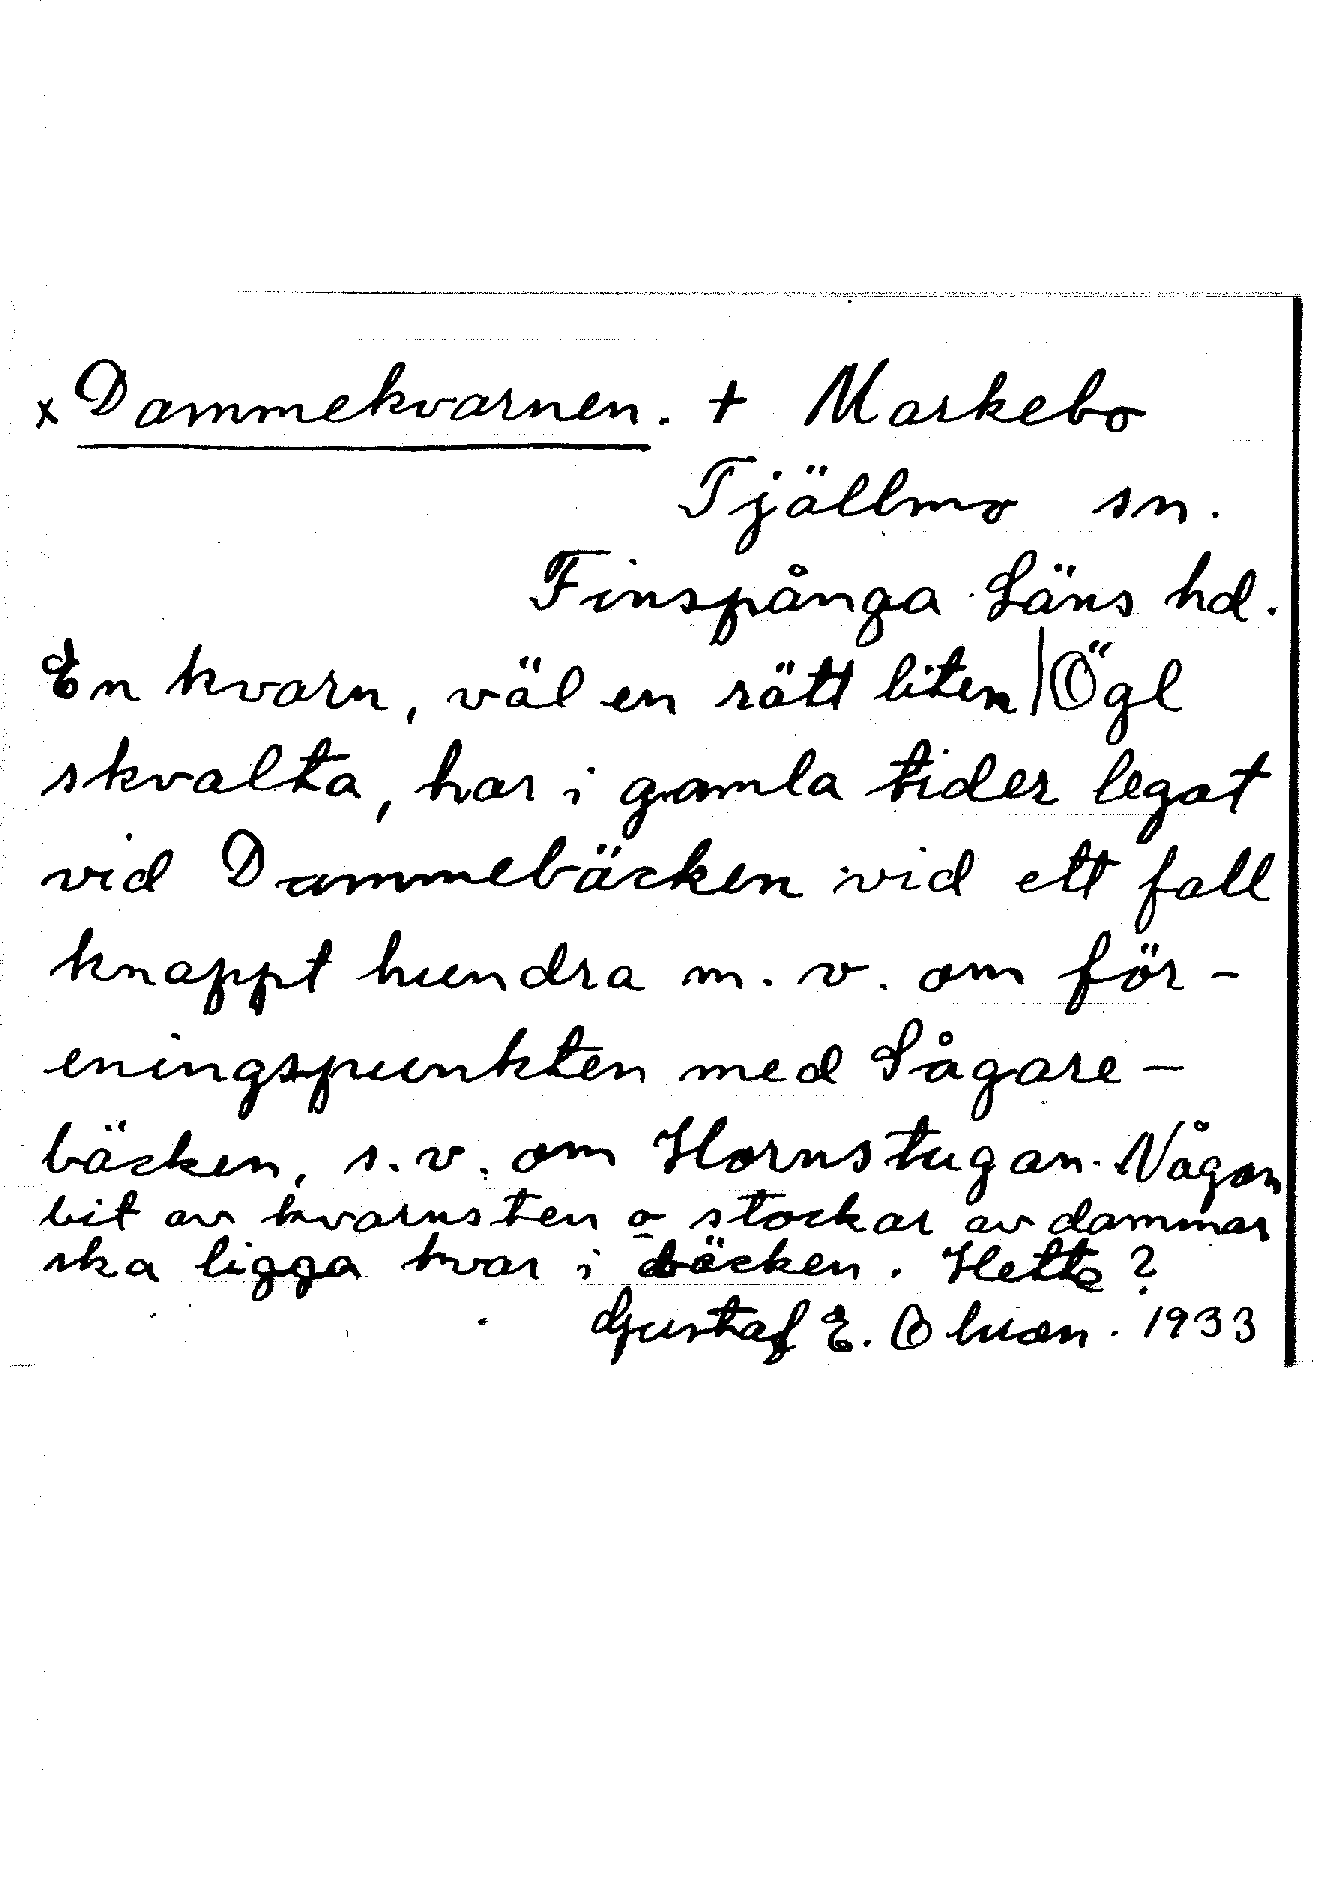 x Dammekvarnen. + Markebo
Tjällmo sn.
Finspånga Läns hd.
En kvarn, väl en rätt liten | Ögl
skvalta, har i gamla tider legat
vid Dammebäcken vid ett fall
knappt hundra m. v. om för-
eningspunkten med Sågare-
bäcken, s.v. om Hornstugan. Någon
bit av kvarnsten o stockar av dammar
ska ligga kvar i bäcken. Hette ?
Gustaf E. Olsson. 1933